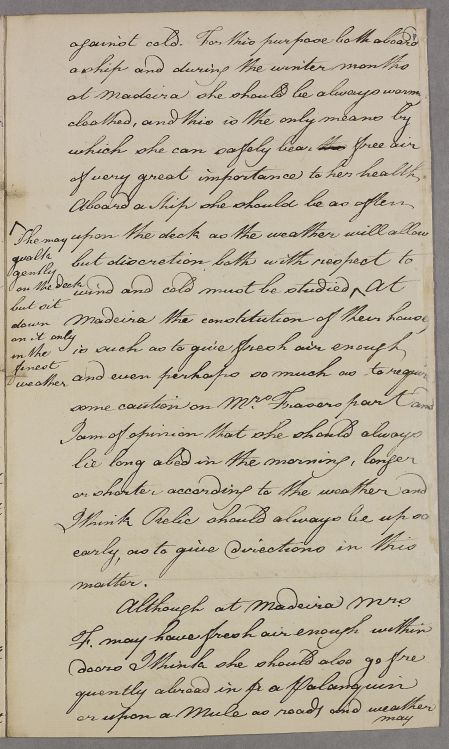 against cold. For this purpose both aboard
a ship and during the winter months
at Madeira she should be always warm
cloathed, and this is the only means by
which she can safely bear the free air
of very great importance to her health.
Aboard a ship she should be as often
upon the deck as the weather will allow
but discretion both with respect to
wind and cold must be studied ^ At
Madeira the constitution of their houses
is such as to give fresh air enough,
and even perhaps so much as to require
some caution on Mrs Frasers part and
I am of opinion that she should always
lie long abed in the morning, longer
or shorter according to the weather and
I think Relic should always be up so
early, as to give directions in this
matter.
Although at Madeira Mrs
F. may have fresh air enough within
doors I think she should also go fre
quently abroad in a Palanquin
or upon a Mule as roads and weather
may
^ She may
walk
gently
on the deck
but sit
down
on it only
in the
finest
weather